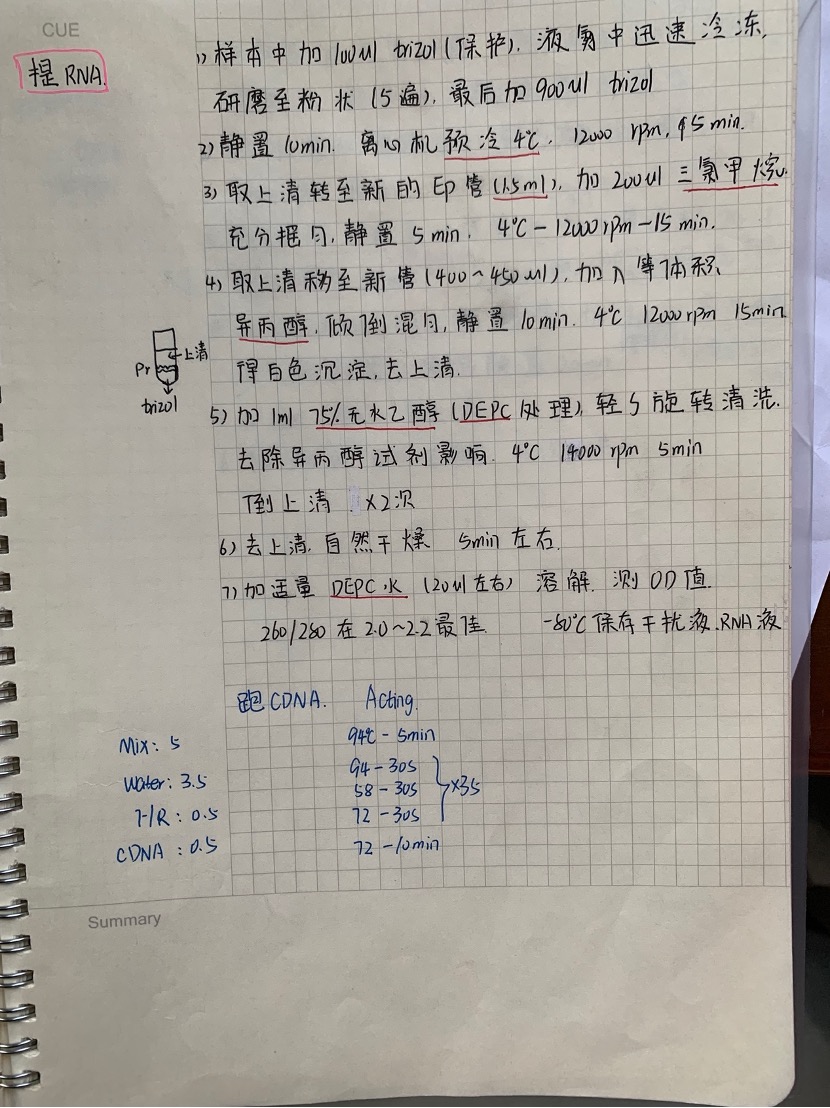 CUE
提RNA.
1) 样本中加100ul trizol(保护), 液氮中迅速冷冻,
研磨至粉状(5遍), 最后加900ul trizol
2) 静置10min. 离心机预冷4℃. 12000 rpm, 5min.
3) 取上清转至新的EP管(1.5ml), 加200ul三氯甲烷.
充分摇匀, 静置5min. 4℃-12000rpm-15min.
4) 取上清移至新管(400~450ul), 加入等体积
异丙醇, 倾倒混匀, 静置10min. 4℃ 12000rpm 15min
得白色沉淀, 去上清.
上清
Pr
trizol
5) 加1ml 75%无水乙醇(DEPC处理), 轻轻旋转清洗.
去除异丙醇试剂影响. 4℃ 14000 rpm 5min
倒上清 ×2次
6) 去上清, 自然干燥 5min左右.
7) 加适量DEPC水(20ul左右) 溶解. 测OD值.
260/280在2.0~2.2最佳. -80℃保存干扰液.RNA液
跑CDNA. Acting.
94℃-5min
Mix: 5
94-30s
Water: 3.5
58-30s ×35
F/R: 0.5
72-30s
CDNA: 0.5
72-10min
Summary